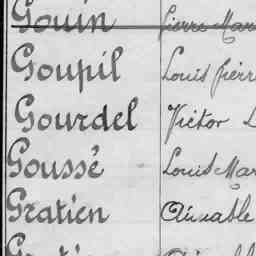 Gouin Pierre Mar
Goupil Louis Pierr
Gourdel Victor L
Goussé Louis Mar
Gratien Aimable